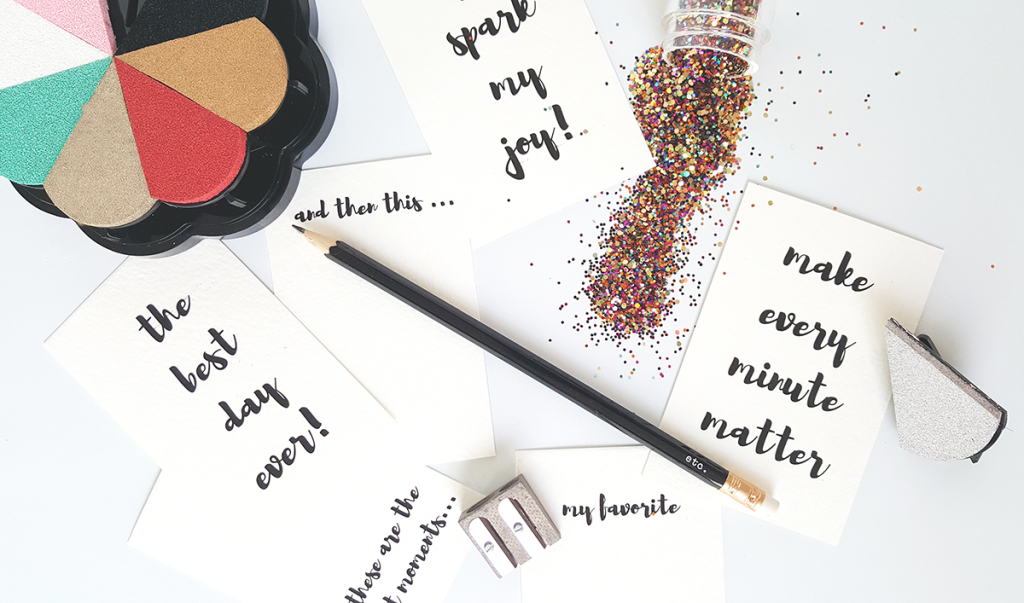 spark
my
joy!
and then this ...
the
best
day
ever!
make
every
minute
matter
eto.
my favorite
these are the
moments...